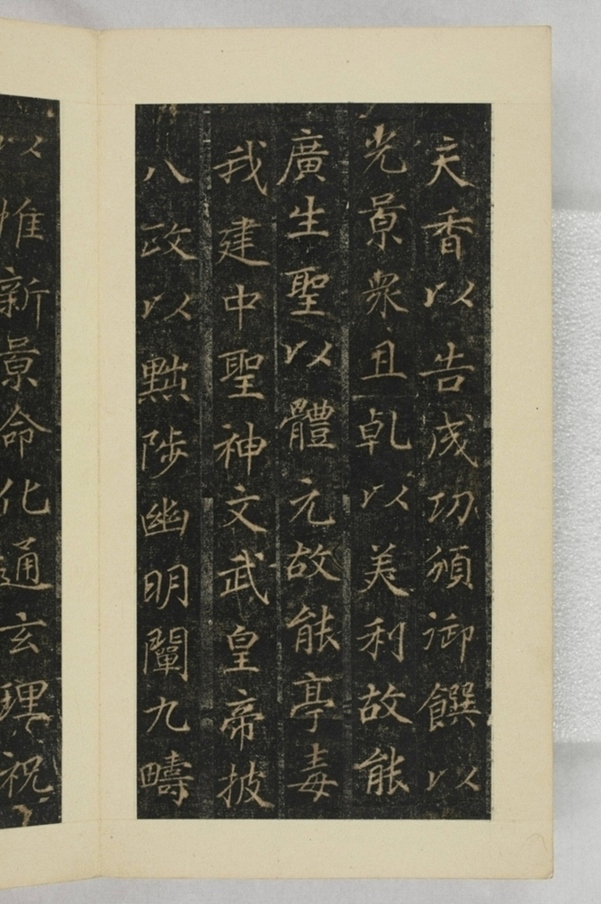 天香以告成功頒御饌以
光景衆且乹以美利故能
廣生聖以體元故能亭毒
我建中聖神文武皇帝披
八政以黜陟幽明闡九疇
以惟新景命化通玄理祝